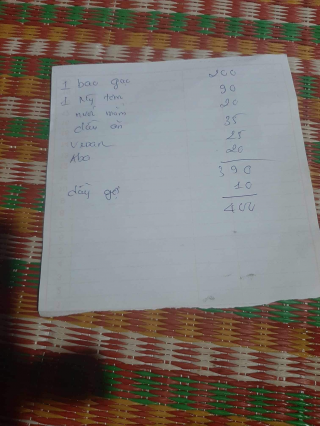 1 bao gạo 200
1 Mỳ tôm 90
nước mắm 20
dầu ăn 35
25
20
390
dầu gội 10
400